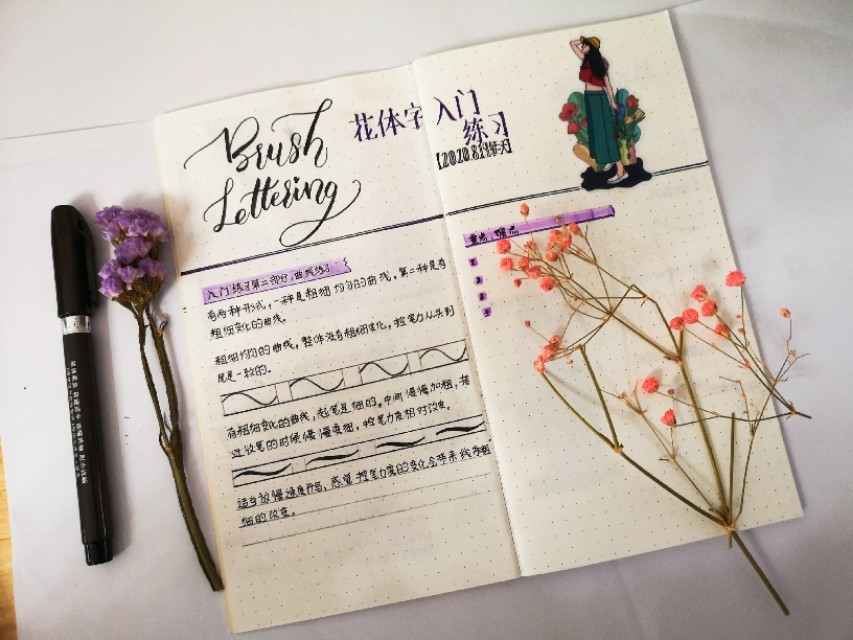 Brush
Lettering
花体字入门
练习
入门练习第二部分,曲线练习
有两种形式,一种是粗细均匀的曲线,第二种是有
粗细变化的曲线。
粗细均匀的曲线,整体没有粗细变化,控笔力从头到
尾是一致的。
有粗细变化的曲线,起笔是细的,中间慢慢加粗,接
近收笔的时候慢慢变细,控笔力度相对改变。
适当放慢速度书写,感觉控笔力度的变化会带来线条粗
细的改变。
重点、难点